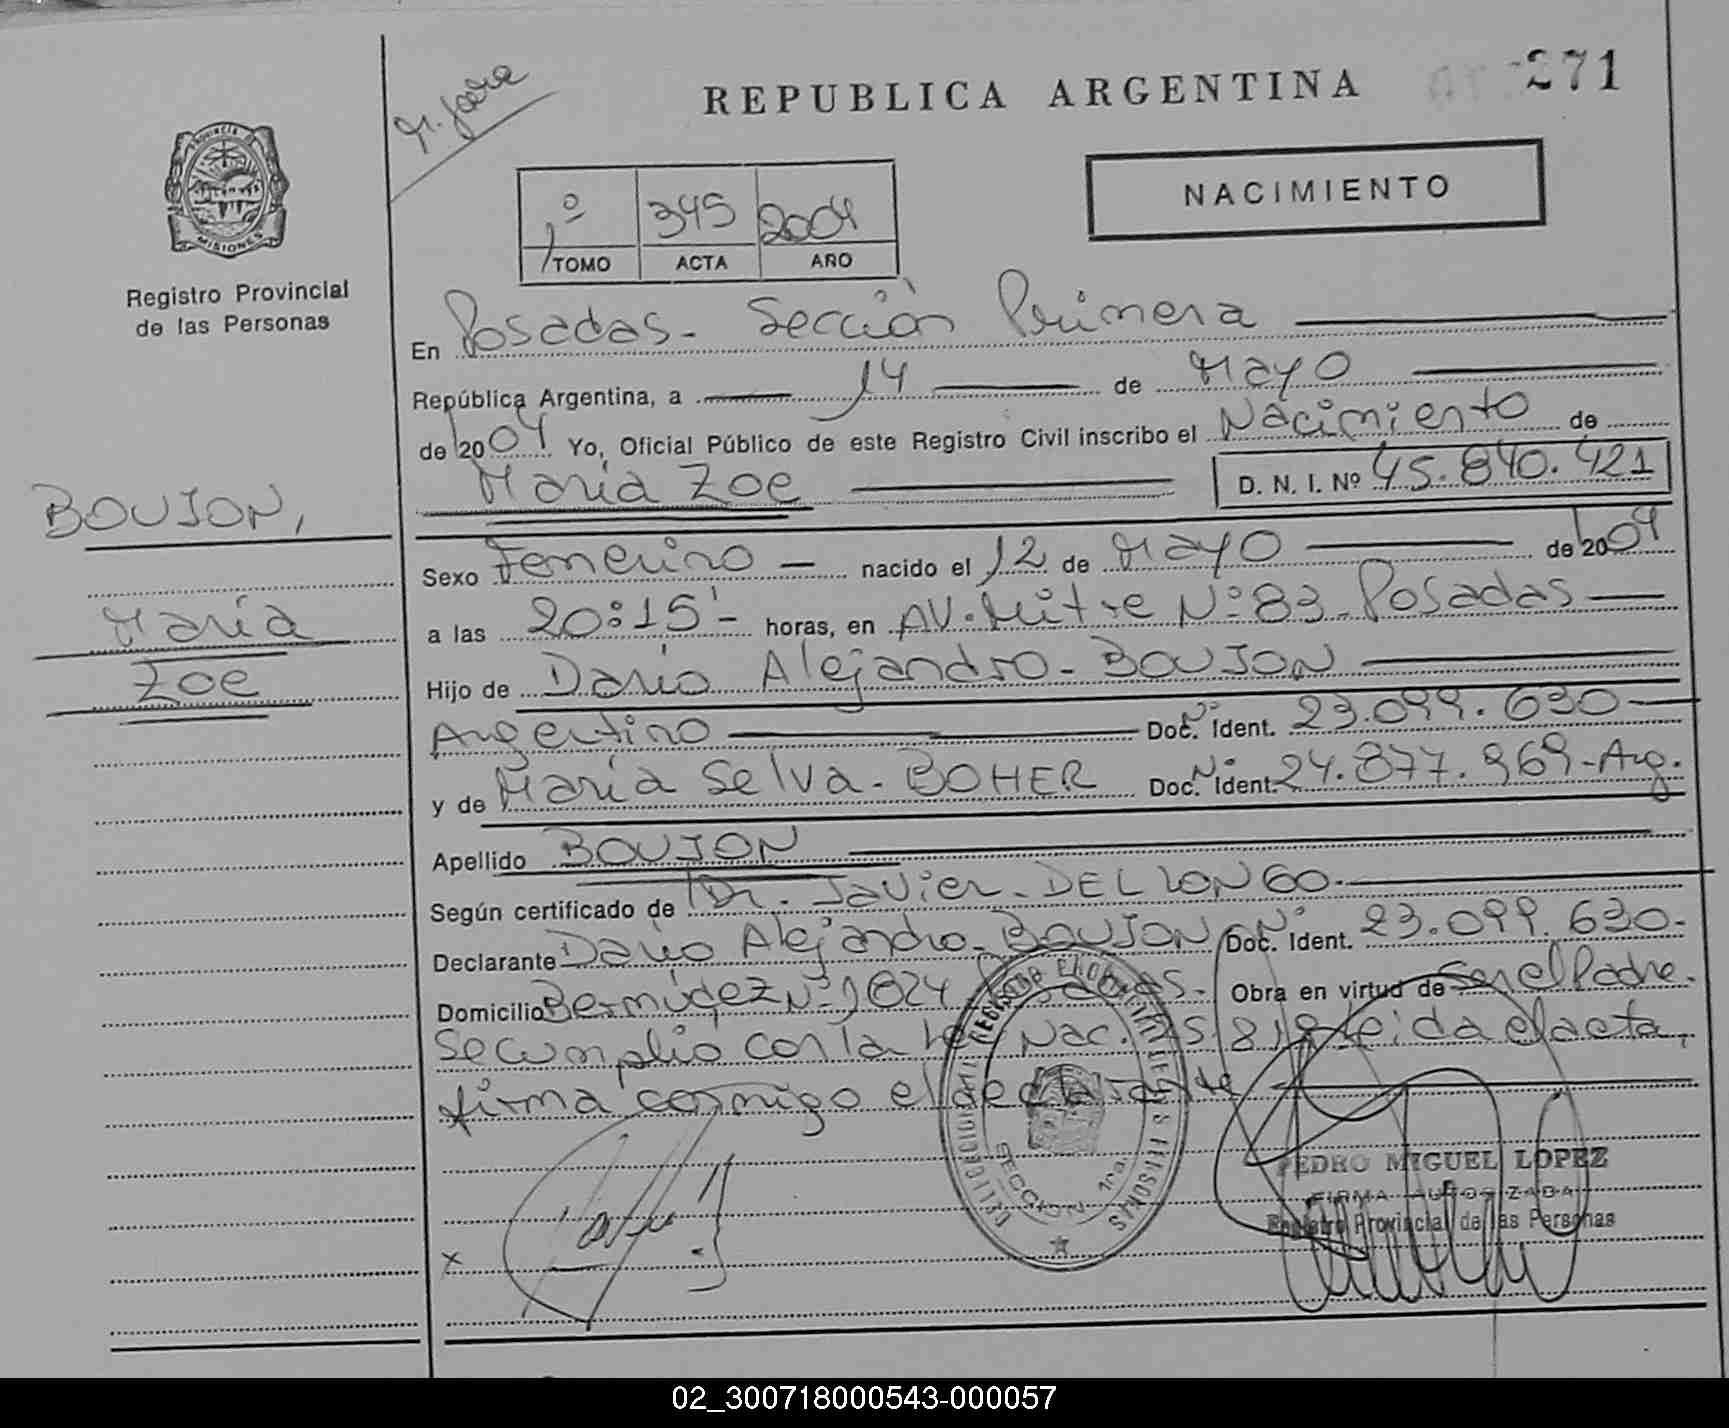 M. Jocra
REPUBLICA ARGENTINA
271
PROVINCIA DE
MISIONES
Registro Provincial
de las Personas
1º 345 2004
TOMO ACTA AÑO
NACIMIENTO
En Posadas - Sección Primera
República Argentina, a 14 de Mayo
de 2004 Yo, Oficial Público de este Registro Civil inscribo el Nacimiento de
María Zoe D. N. I. Nº 45.840.421
BOUJON,
María
Zoe
Sexo Femenino - nacido el 12 de Mayo de 2004
a las 20:15'- horas, en AV. Mitre Nº 83. Posadas
Hijo de Darío Alejandro - BOUJON
Argentino Doc. Nº Ident. 23.099.630
y de María Selva - BOHER Doc. Nº Ident. 24.877.969-Arg.
Apellido BOUJON
Según certificado de Dr. Javier - DELLONGO.
Declarante Darío Alejandro - BOUJON Nº Doc. Ident. 23.099.630-
Domicilio Bermúdez Nº 1024 Posadas. Obra en virtud de Ser el Padre.
Se cumplió con la Ley Nac. leida el acta,
firma conmigo el declarante
REGISTRO PROVINCIAL DE LAS PERSONAS
SECCION 1ra
x
PEDRO MIGUEL LOPEZ
FIRMA AUTORIZADA
Registro Provincial de las Personas
02_300718000543-000057